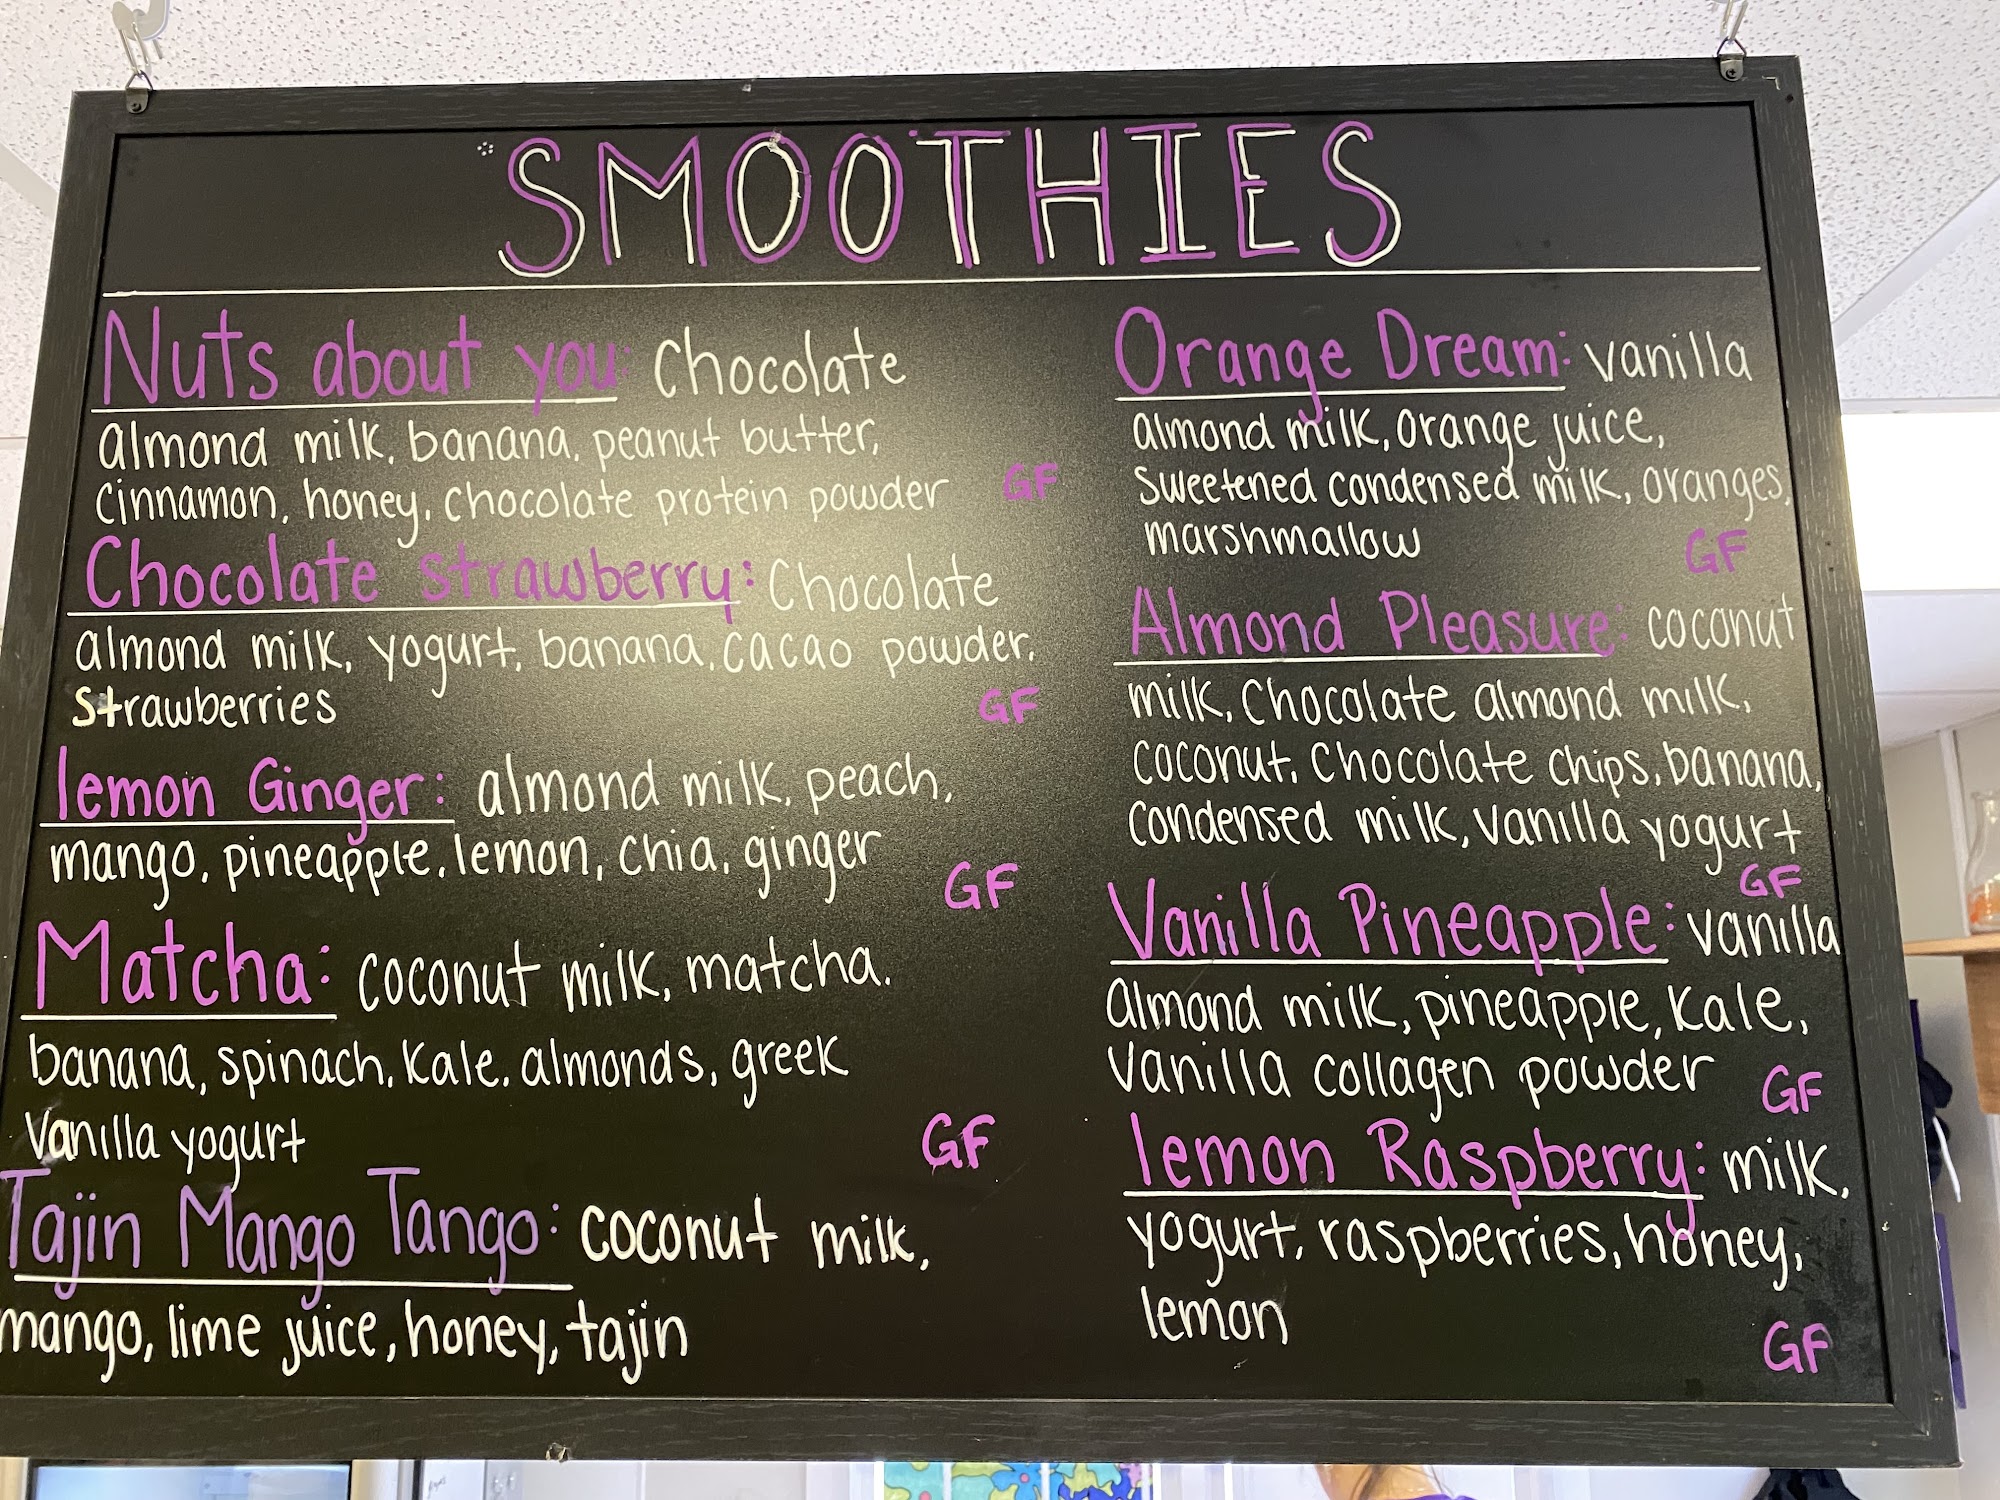 SMOOTHIES
Nuts about you: Chocolate
almond milk, banana, peanut butter,
cinnamon, honey, chocolate protein powder GF
Chocolate strawberry: Chocolate
almond milk, yogurt, banana, cacao powder,
strawberries GF
lemon Ginger: almond milk, peach,
mango, pineapple, lemon, chia, ginger
GF
Matcha: coconut milk, matcha,
banana, spinach, kale, almonds, greek
vanilla yogurt GF
Tajin Mango Tango: coconut milk,
mango, lime juice, honey, tajin
Orange Dream: vanilla
almond milk, orange juice,
sweetened condensed milk, oranges,
marshmallow GF
Almond Pleasure: coconut
milk, chocolate almond milk,
coconut, chocolate chips, banana,
condensed milk, vanilla yogurt
GF
Vanilla Pineapple: vanilla
almond milk, pineapple, kale,
vanilla collagen powder GF
lemon Raspberry: milk,
yogurt, raspberries, honey,
lemon
GF